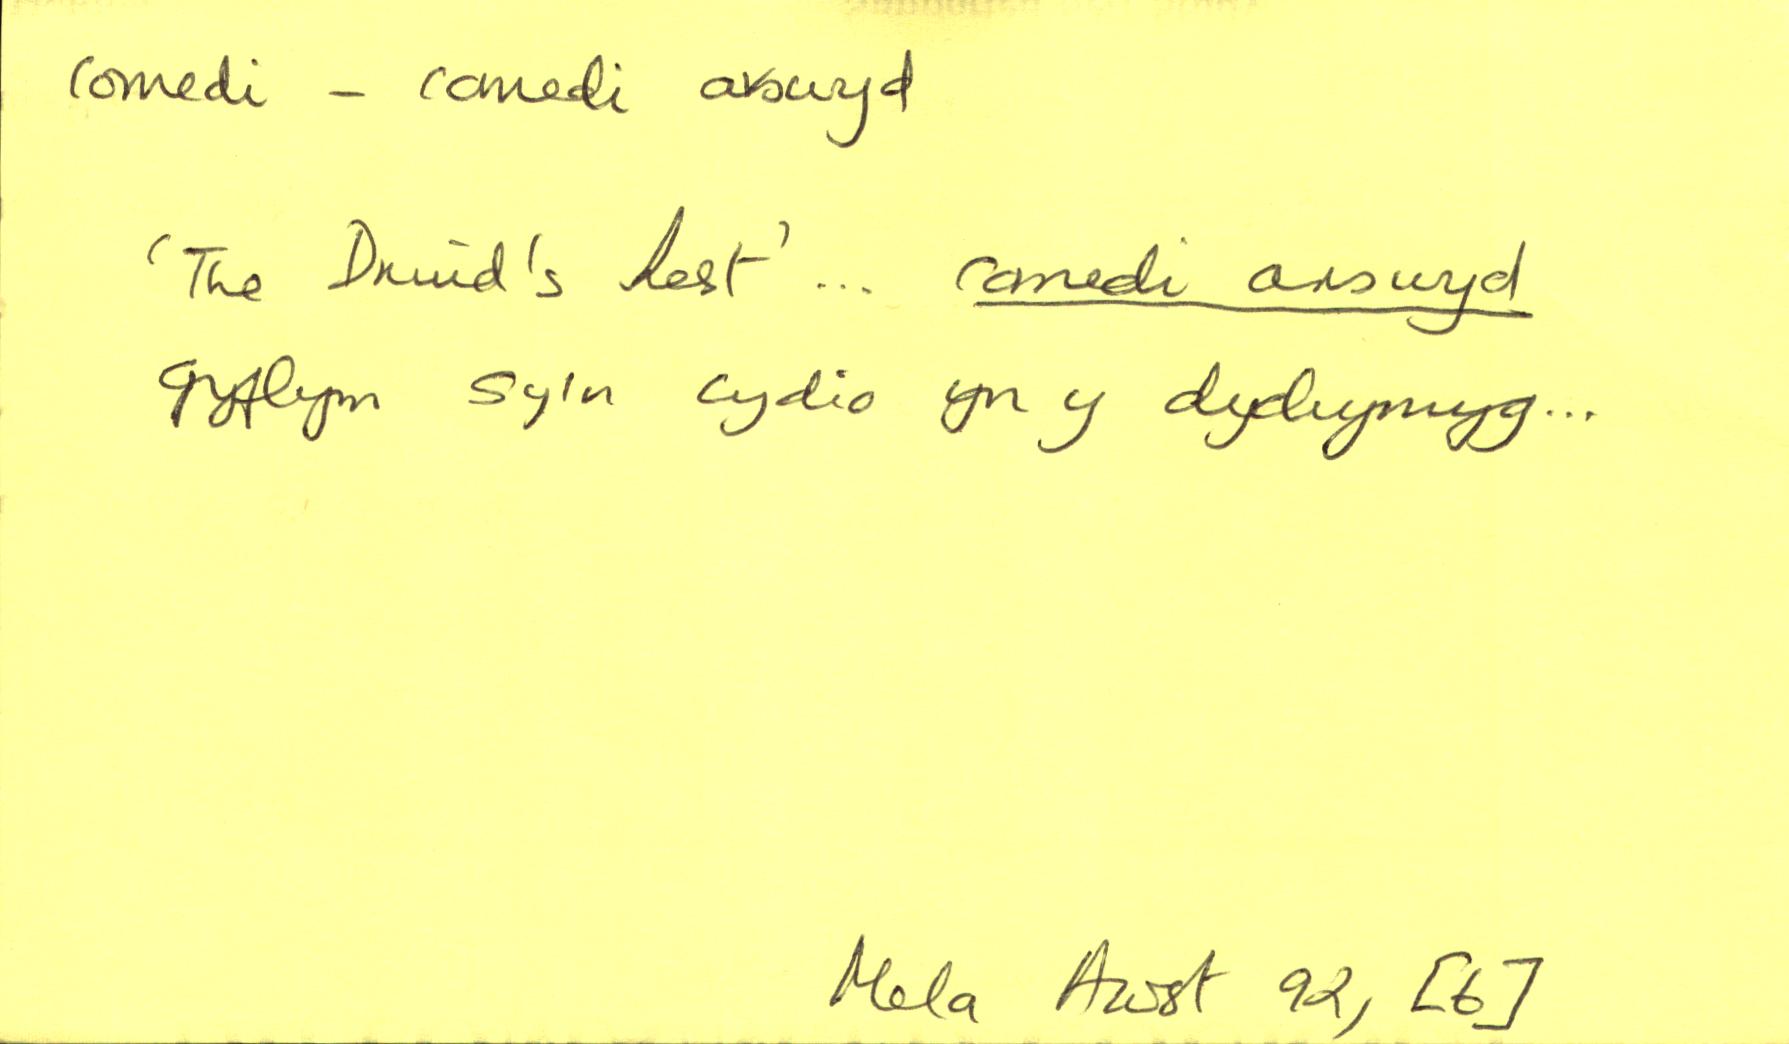 comedi – comedi arswyd
'The Druid's Rest' ... comedi arswyd
gyflym sy'n cydio yn y dychymyg...
Mela Awst 92, [6]